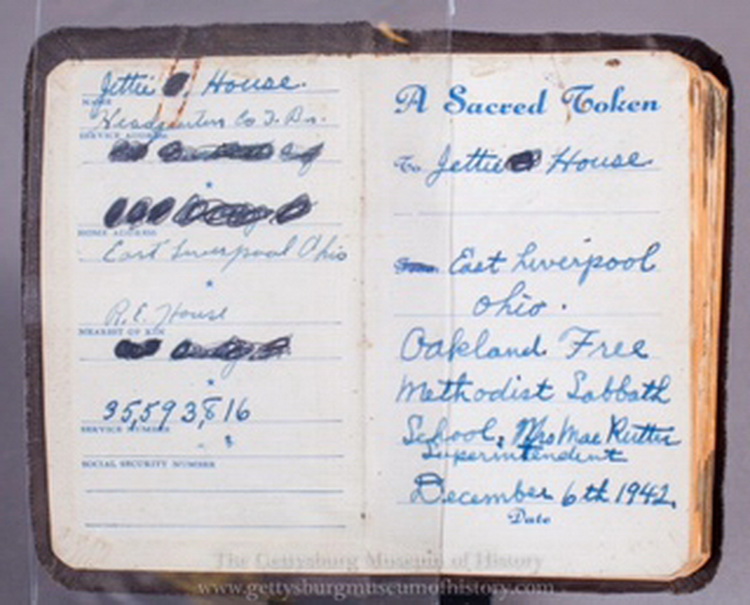 Jettie House.
NAME
Headquarters Co 3. Bn.
SERVICE ADDRESS
HOME ADDRESS
East Liverpool Ohio
R.E. House
NEAREST OF KIN
35,593,816
SERVICE NUMBER
SOCIAL SECURITY NUMBER
A Sacred Token
To Jettie House.
East Liverpool
Ohio.
Oakland Free
Methodist Sabbath
School, Mrs Mae Rutter
Superintendent
December 6th 1942.
Date
The Gettysburg Museum of History
www.gettysburgmuseumofhistory.com